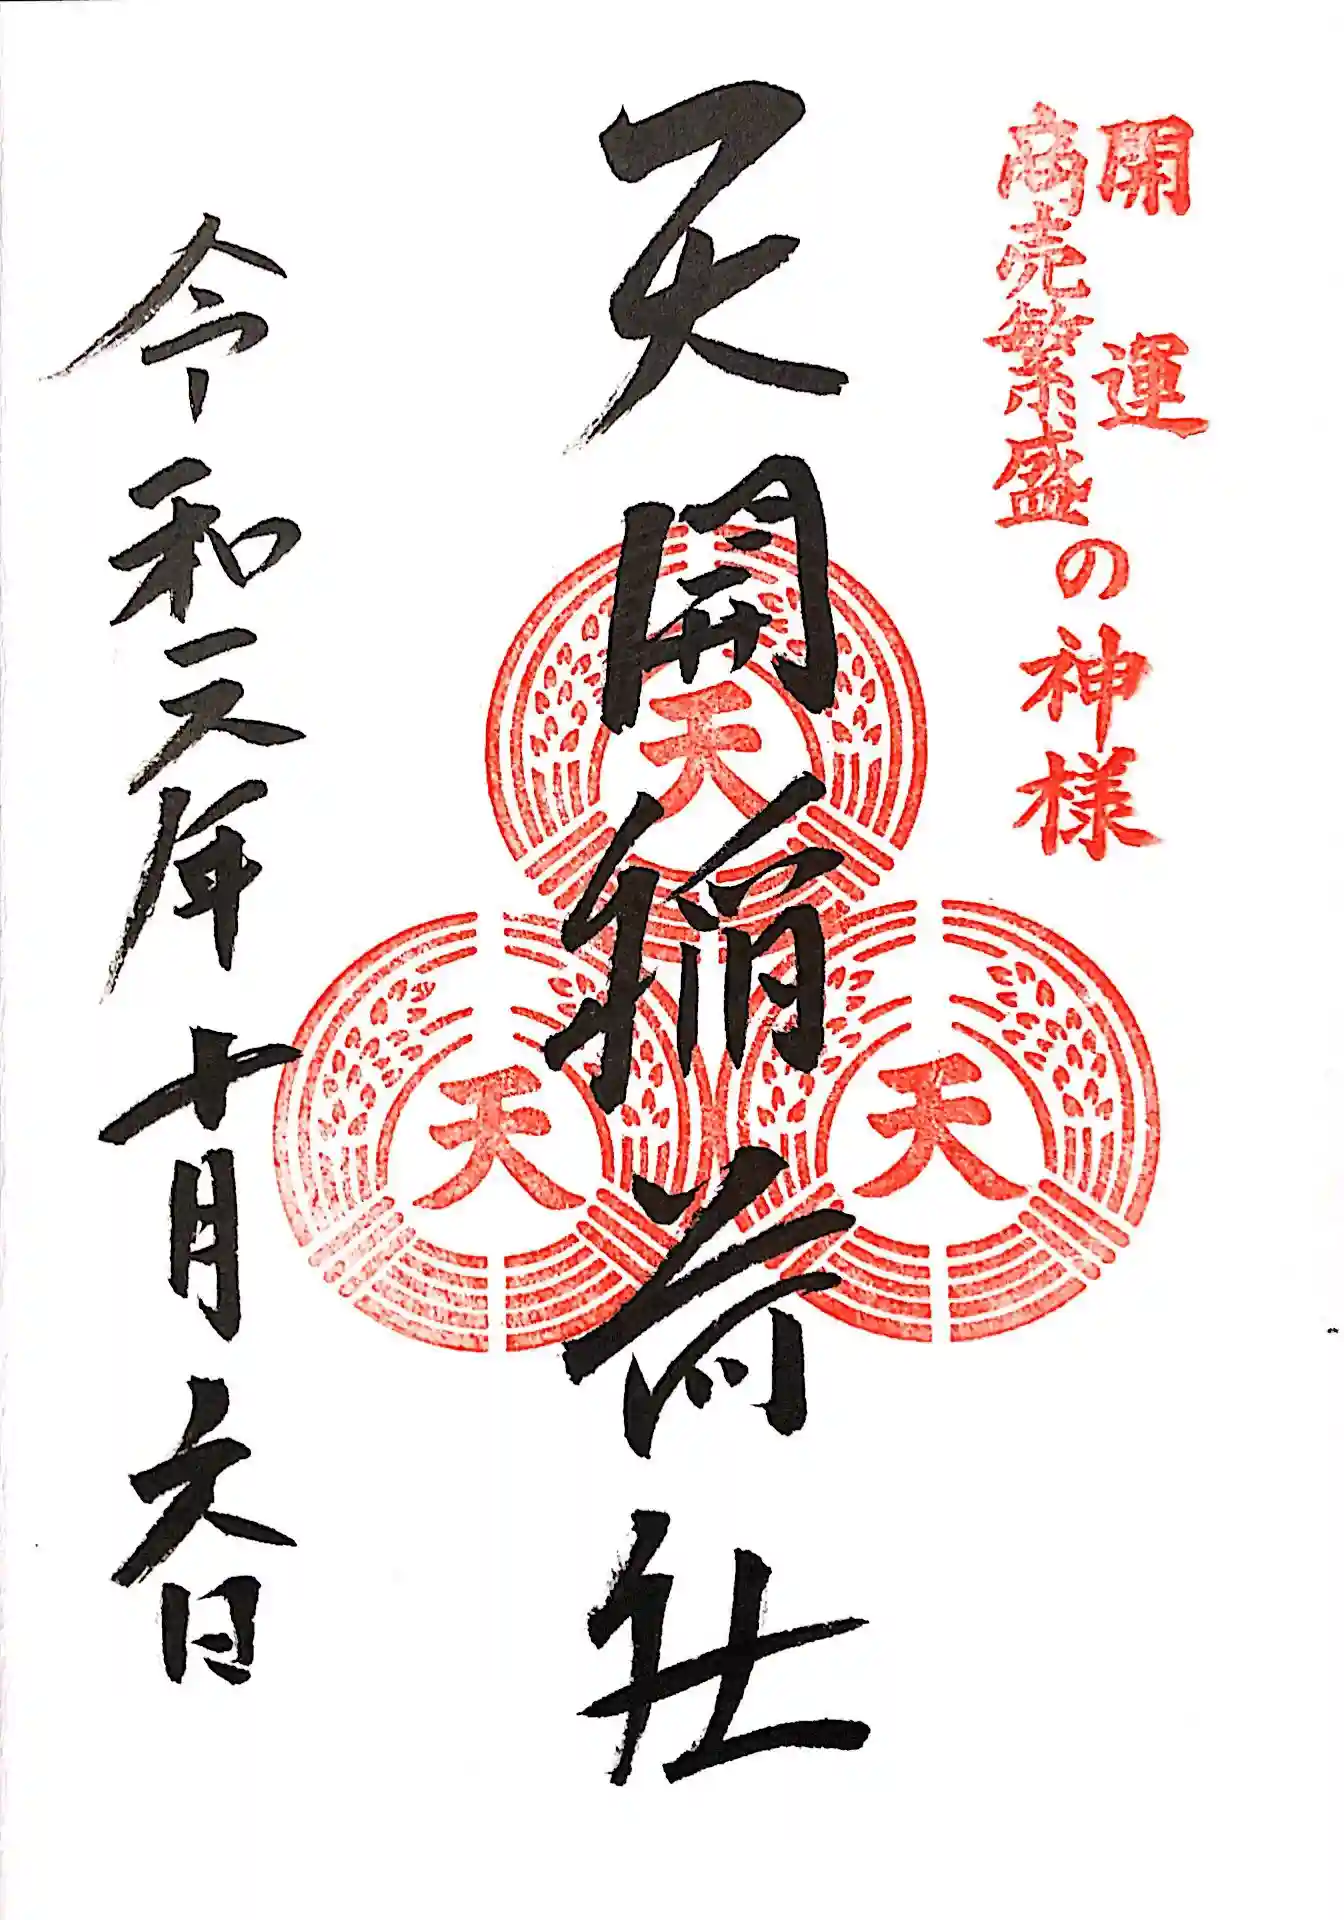 開運
商売繁盛
の神様
天開稲荷社
天
天
天
令和元年十月六日